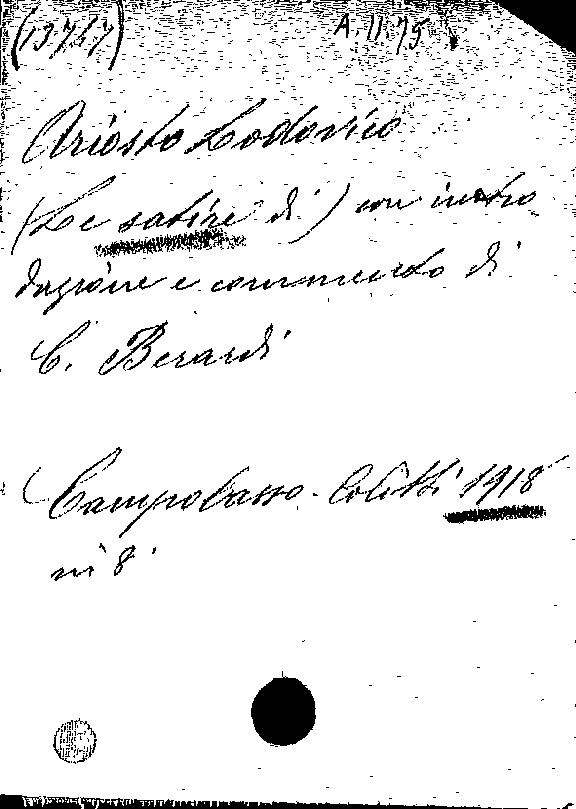 (13717) A.11.75
Ariosto Lodovico
(Le satire di) con intro
duzione e commento di
C. Berardi
Campobasso - Colitti 1918
in 8°